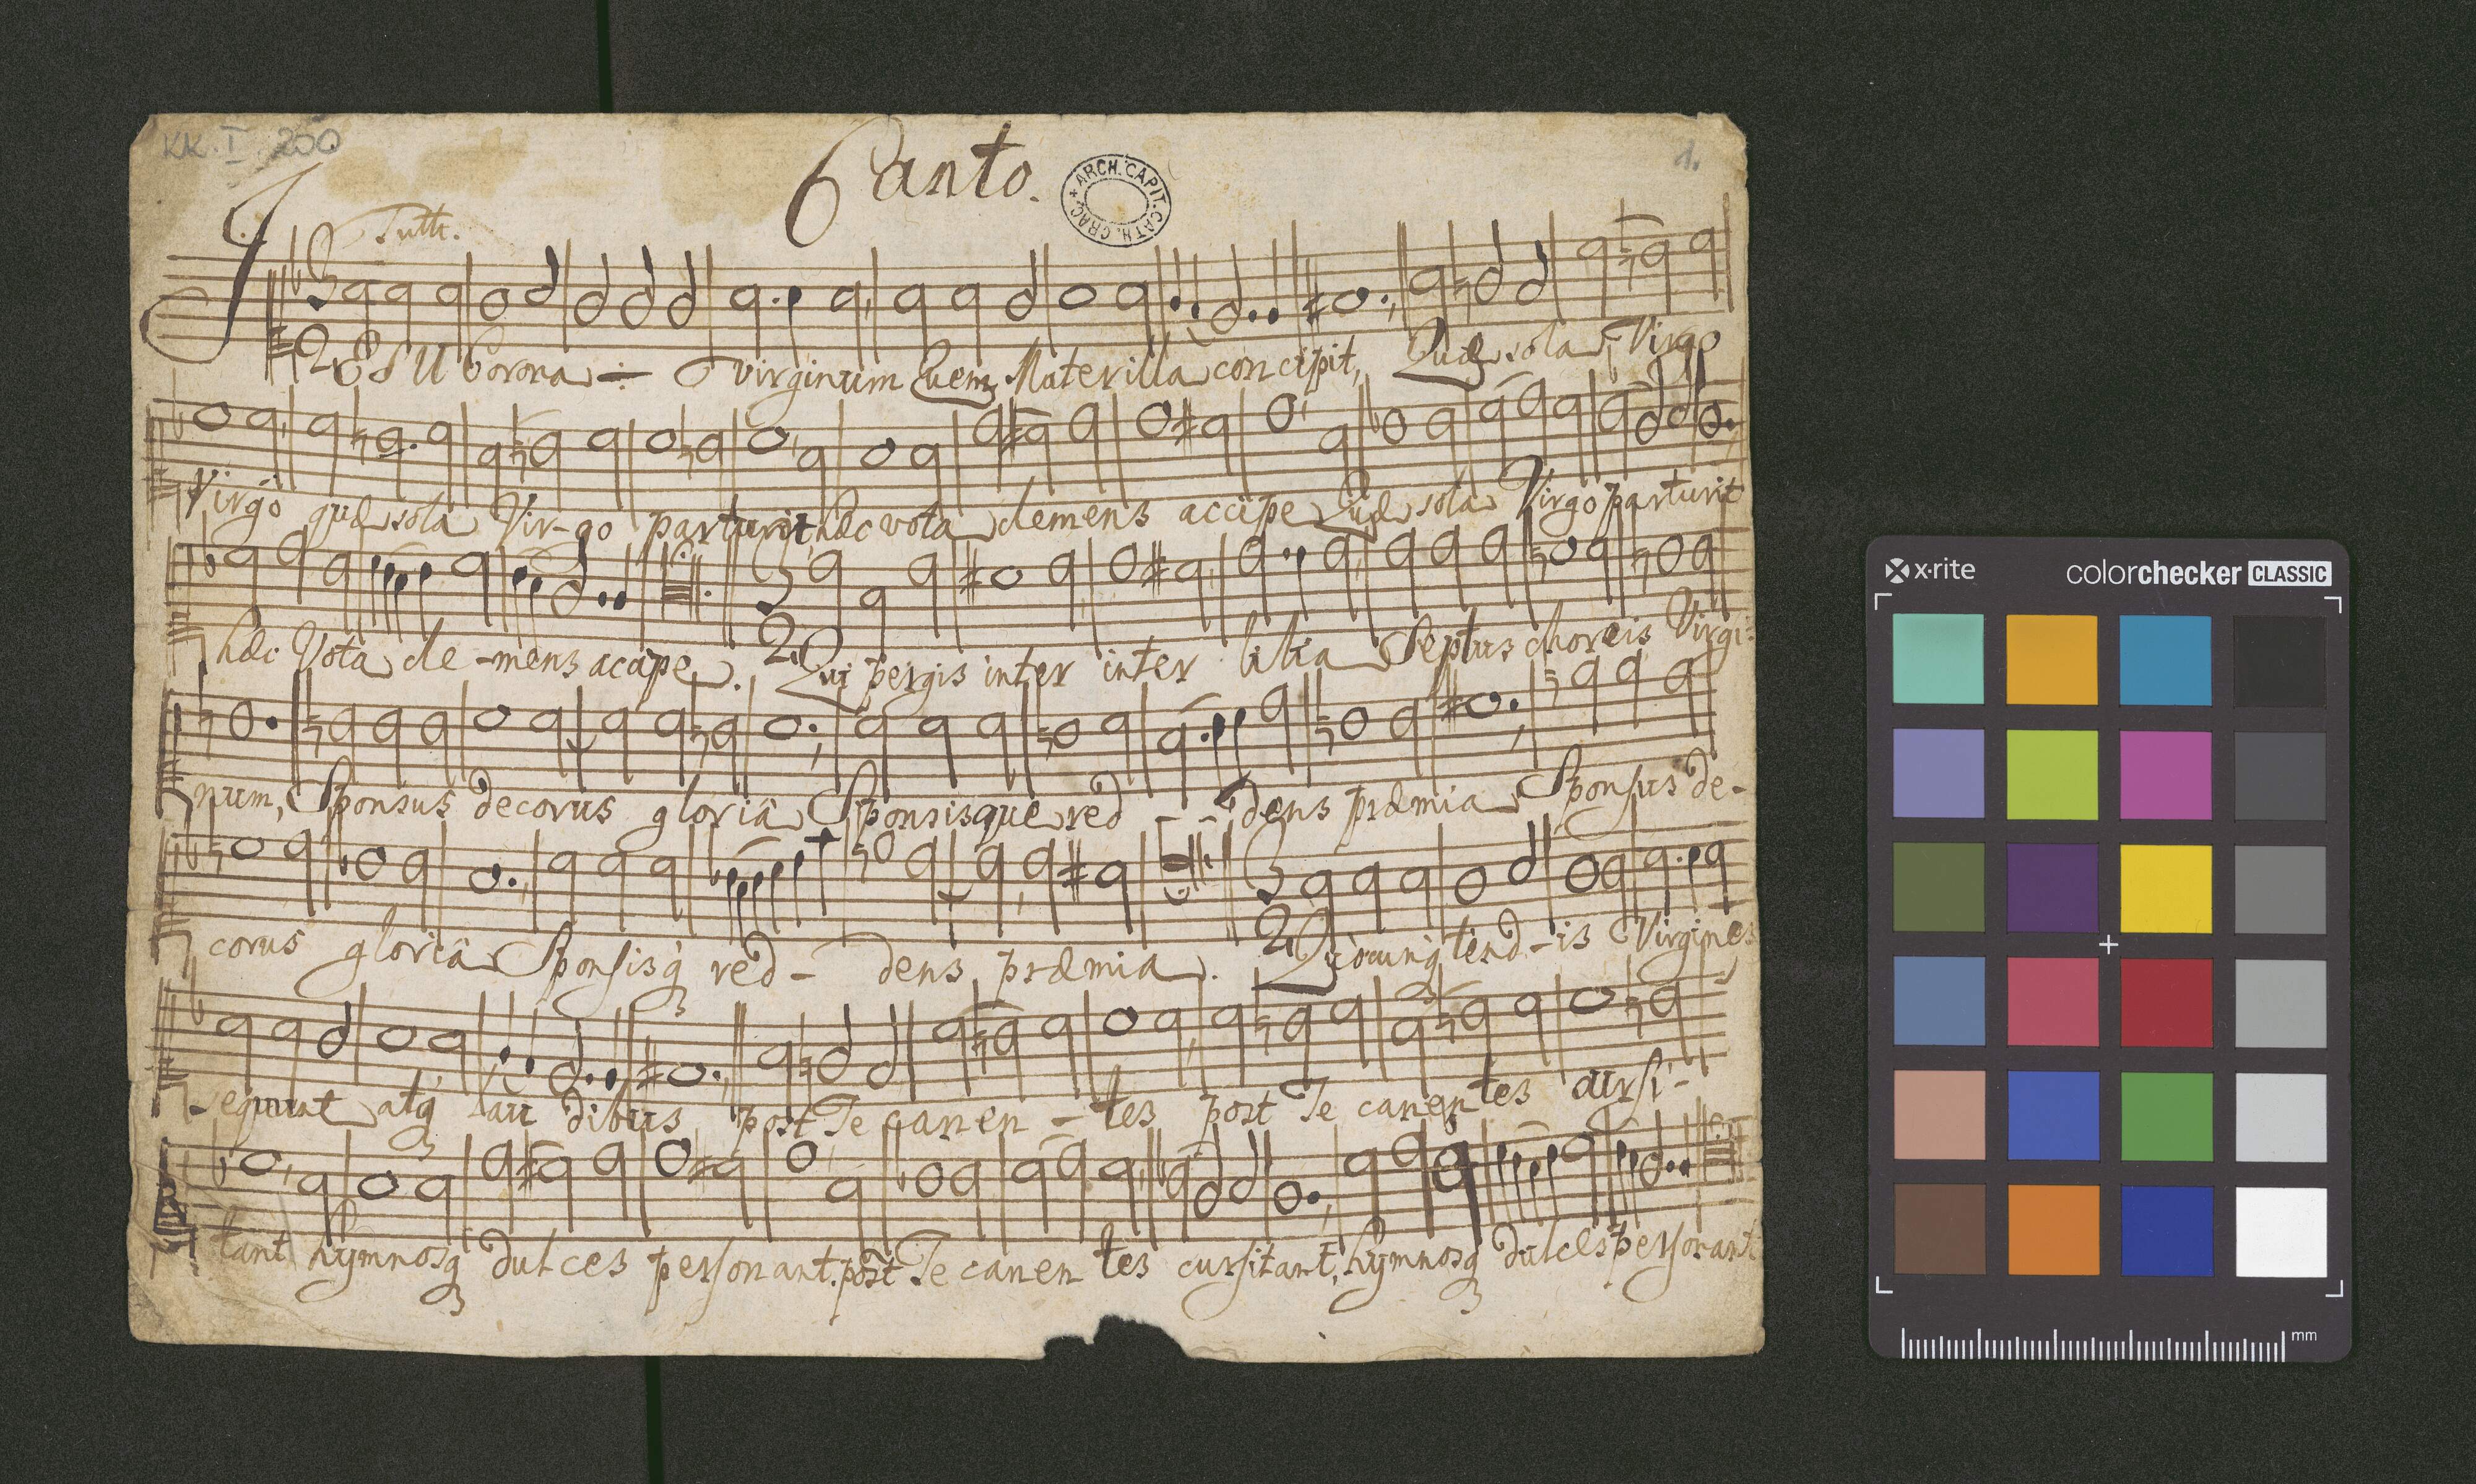 KK. I. 200
Canto.
ARCH. CAPIT. CATH. CRAC.
1.
Tutti.
JESU Corona virginum Quem Mater illa concipit, Quæ sola Virgo
Virgo quæ sola Vir-go parturit, hæc vota clemens accipe Quæ sola Virgo parturit
hæc Vota cle-mens accipe. Qui pergis inter inter lilia Septus choreis Virgi:
num, Sponsus decorus gloriâ Sponsisque red - - dens præmia Sponsus de-
corus gloriâ Sponsisq̃ red- dens præmia. Quocunq̃ tend-is Virgines
sequunt atq̃ lau dibus post Te canen-tes post Te canentes cursi-
tant hymnosq̃ dulces personant. post Te canen tes cursitant, hymnosq̃ dulces personant
x-rite
colorchecker CLASSIC
mm